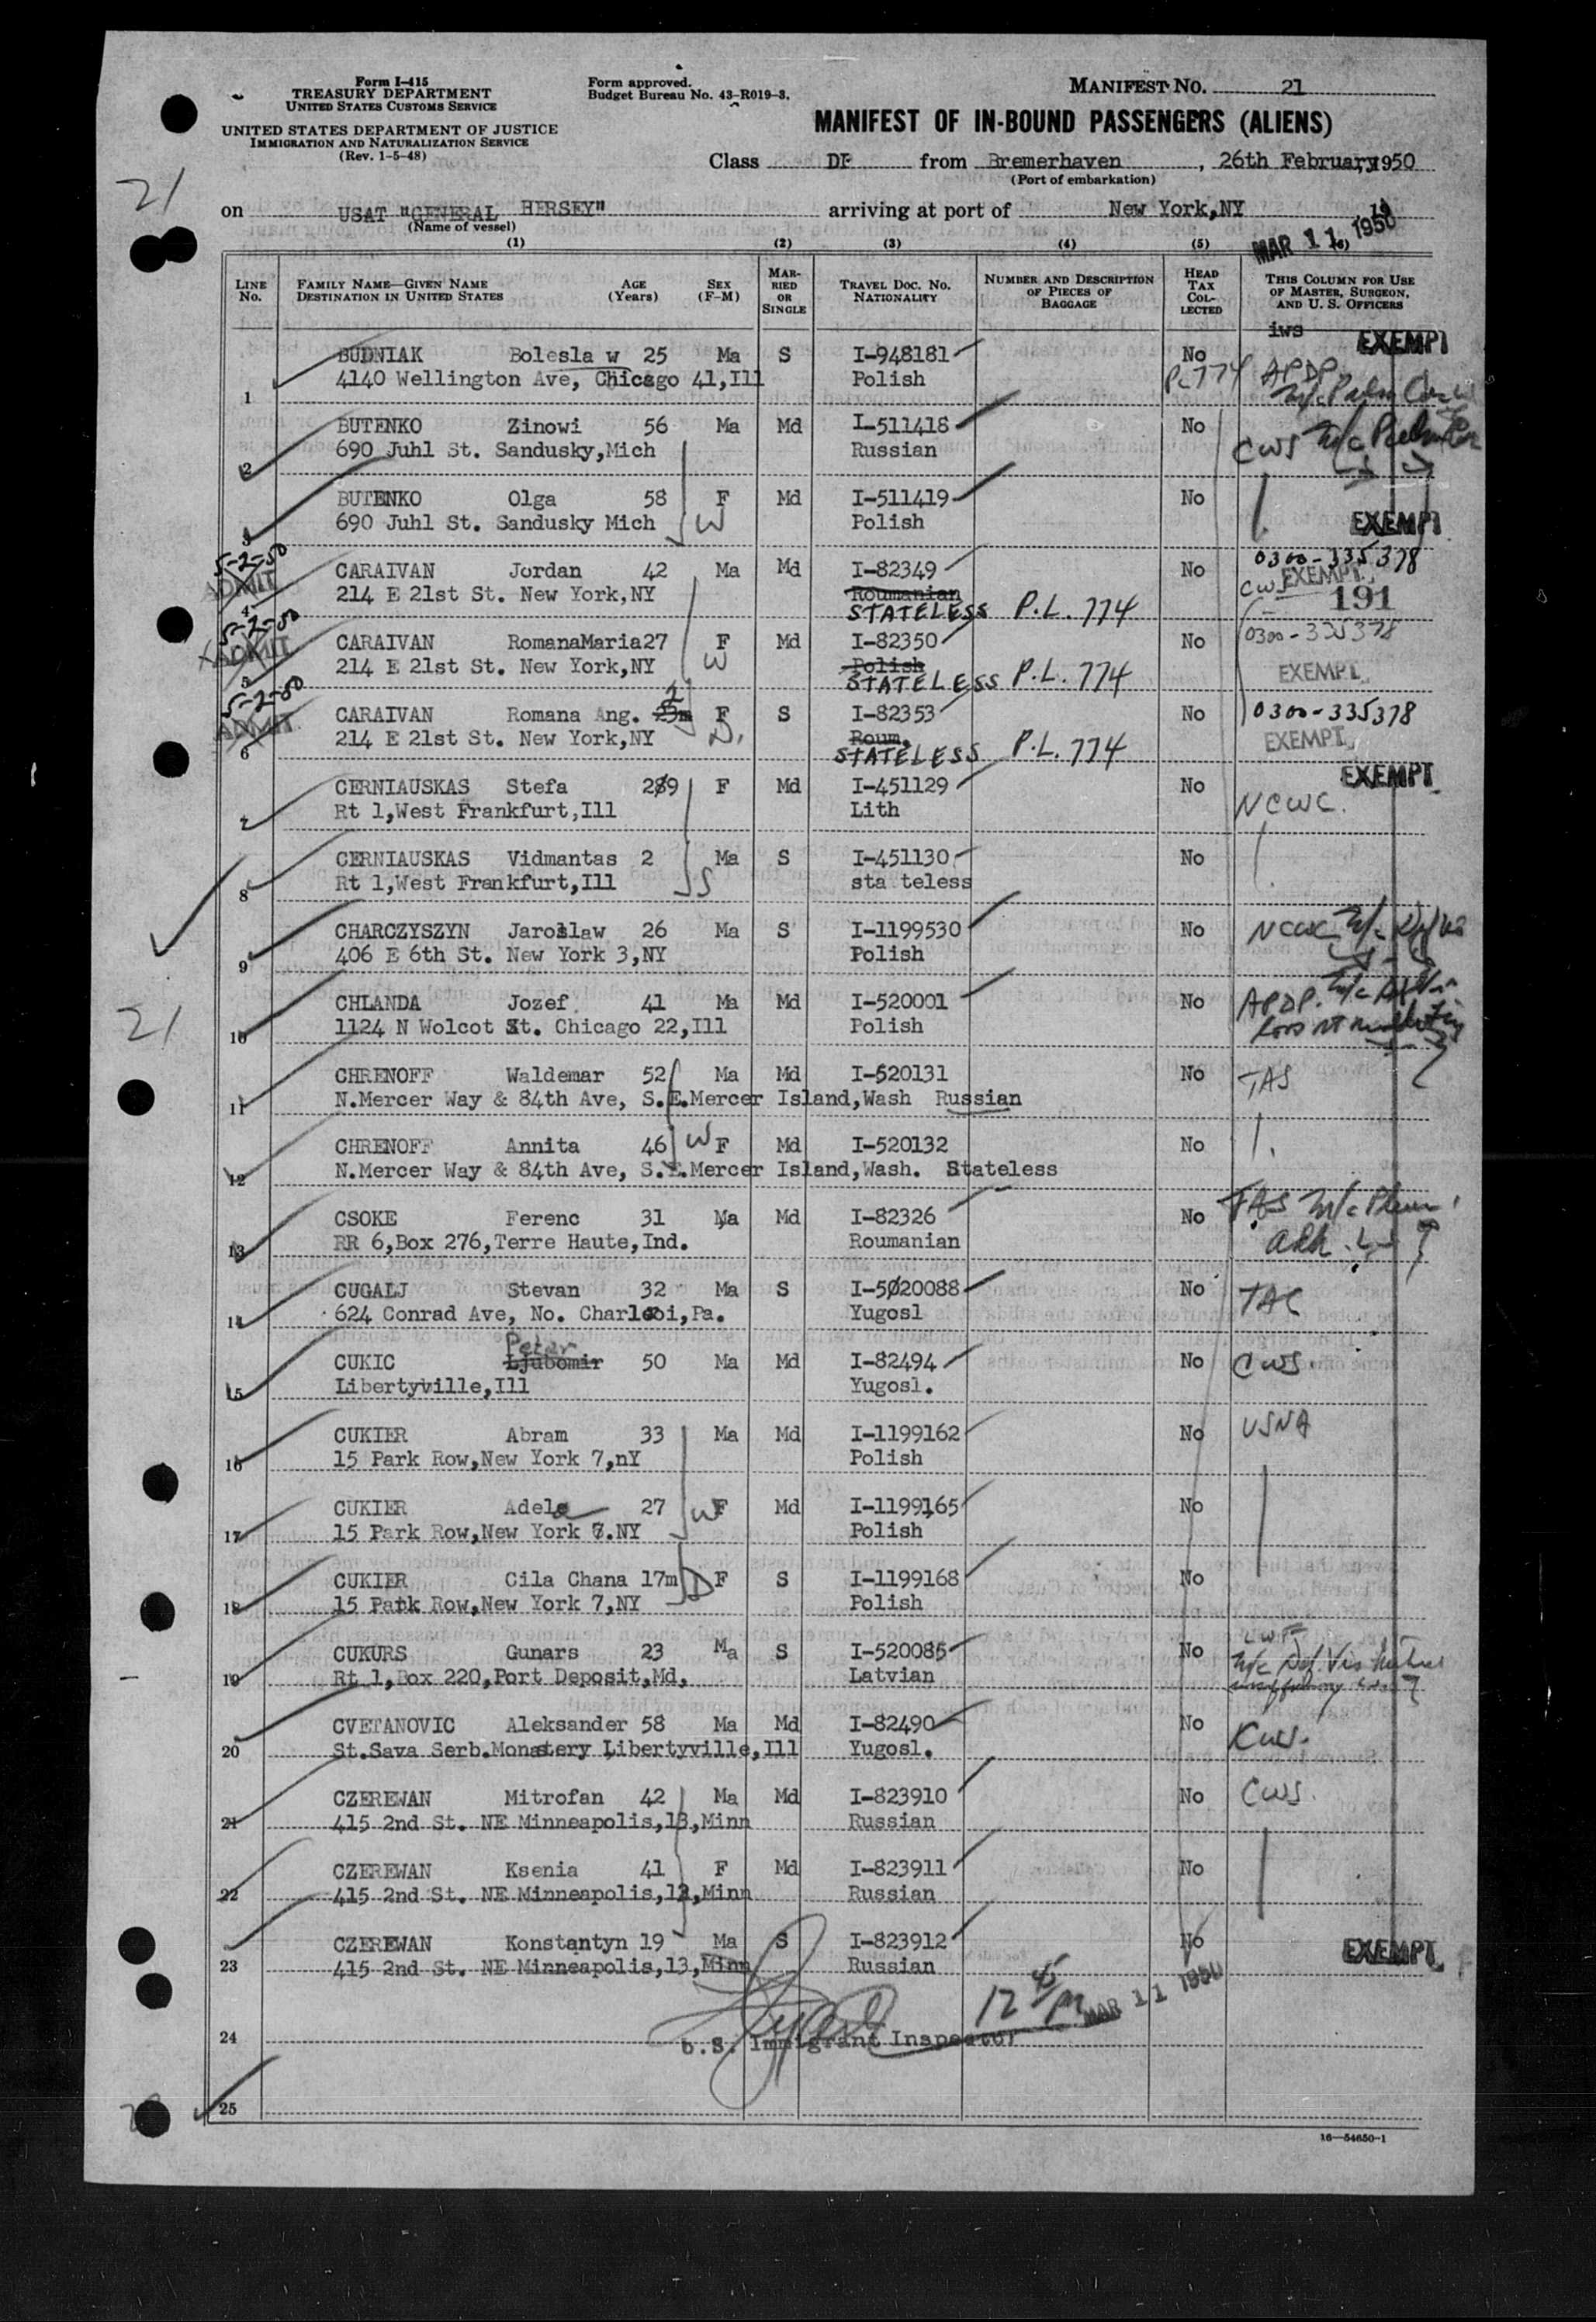 Form I-415
TREASURY DEPARTMENT
UNITED STATES CUSTOMS SERVICE
UNITED STATES DEPARTMENT OF JUSTICE
IMMIGRATION AND NATURALIZATION SERVICE
(Rev. 1-5-48)
Form approved.
Budget Bureau No. 43-R019-3.
MANIFEST NO. 21
MANIFEST OF IN-BOUND PASSENGERS (ALIENS)
Class DP from Bremerhaven, 26th February, 1950
(Port of embarkation)
21
on USAT "GENERAL HERSEY" arriving at port of New York,NY 19
(Name of vessel)
MAR 11 1950
(1) (2) (3) (4) (5) (6)
LINE No. FAMILY NAME—GIVEN NAME DESTINATION IN UNITED STATES AGE (Years) SEX (F-M) MARRIED OR SINGLE TRAVEL DOC. NO. NATIONALITY NUMBER AND DESCRIPTION OF PIECES OF BAGGAGE HEAD TAX COLLECTED THIS COLUMN FOR USE OF MASTER, SURGEON, AND U. S. OFFICERS
iws EXEMPT
BUDNIAK Bolesla w 25 Ma S I-948181 No
1 4140 Wellington Ave, Chicago 41,Ill Polish PL774 APDP
BUTENKO Zinowi 56 Ma Md I-511418 No
2 690 Juhl St. Sandusky,Mich Russian CWS
BUTENKO Olga 58 F Md I-511419 No
3 690 Juhl St. Sandusky Mich W Polish EXEMPT
5-2-50 ADMIT
CARAIVAN Jordan 42 Ma Md I-82349 No 0300-335378
4 214 E 21st St. New York,NY Roumanian CWS EXEMPT
STATELESS P.L. 774 191
5-2-50 ADMIT
CARAIVAN RomanaMaria27 F Md I-82350 No 0300-335378
5 214 E 21st St. New York,NY W Polish EXEMPT
STATELESS P.L. 774
5-2-50 ADMIT
CARAIVAN Romana Ang. 2 F S I-82353 No 0300-335378
6 214 E 21st St. New York,NY D. Roum. EXEMPT
STATELESS P.L. 774
CERNIAUSKAS Stefa 289 F Md I-451129 No EXEMPT
7 Rt 1,West Frankfurt,Ill Lith NCWC.
CERNIAUSKAS Vidmantas 2 Ma S I-451130 No
8 Rt 1,West Frankfurt,Ill S sta teless
CHARCZYSZYN Jaroslaw 26 Ma S I-1199530 No NCWC
9 406 E 6th St. New York 3,NY Polish
CHLANDA Jozef 41 Ma Md I-520001 No APDP.
10 1124 N Wolcot St. Chicago 22,Ill Polish
21
CHRENOFF Waldemar 52 Ma Md I-520131 No TAS
11 N.Mercer Way & 84th Ave, S.E.Mercer Island,Wash Russian
CHRENOFF Annita 46 W F Md I-520132 No
12 N.Mercer Way & 84th Ave, S.E.Mercer Island,Wash. Stateless
CSOKE Ferenc 31 Ma Md I-82326 No TAS
13 RR 6,Box 276,Terre Haute,Ind. Roumanian
CUGALJ Stevan 32 Ma S I-5020088 No
14 624 Conrad Ave, No. Charleoi,Pa. Yugosl
Peter
CUKIC Ljubomir 50 Ma Md I-82494 No CWS.
15 Libertyville,Ill Yugosl.
CUKIER Abram 33 Ma Md I-1199162 No USNA
16 15 Park Row,New York 7,nY Polish
CUKIER Adela 27 W F Md I-1199165 No
17 15 Park Row,New York 7.NY Polish
CUKIER Cila Chana 17m D F S I-1199168 No
18 15 Patk Row,New York 7,NY Polish
CUKURS Gunars 23 Ma S I-520085 No LWF
19 Rt 1,Box 220,Port Deposit,Md, Latvian
CVETANOVIC Aleksander 58 Ma Md I-82490 No
20 St.Sava Serb.Monastery Libertyville,Ill Yugosl. CWS.
CZEREWAN Mitrofan 42 Ma Md I-823910 No CWS.
21 415 2nd St. NE Minneapolis,13,Minn Russian
CZEREWAN Ksenia 41 F Md I-823911 No
22 415 2nd St. NE Minneapolis,13,Minn Russian
CZEREWAN Konstantyn 19 Ma S I-823912 No EXEMPT
23 415 2nd St. NE Minneapolis,13,Minn Russian
12 45 PM MAR 11 1950
24 U.S. Immigrant Inspector
25
16—54650-1